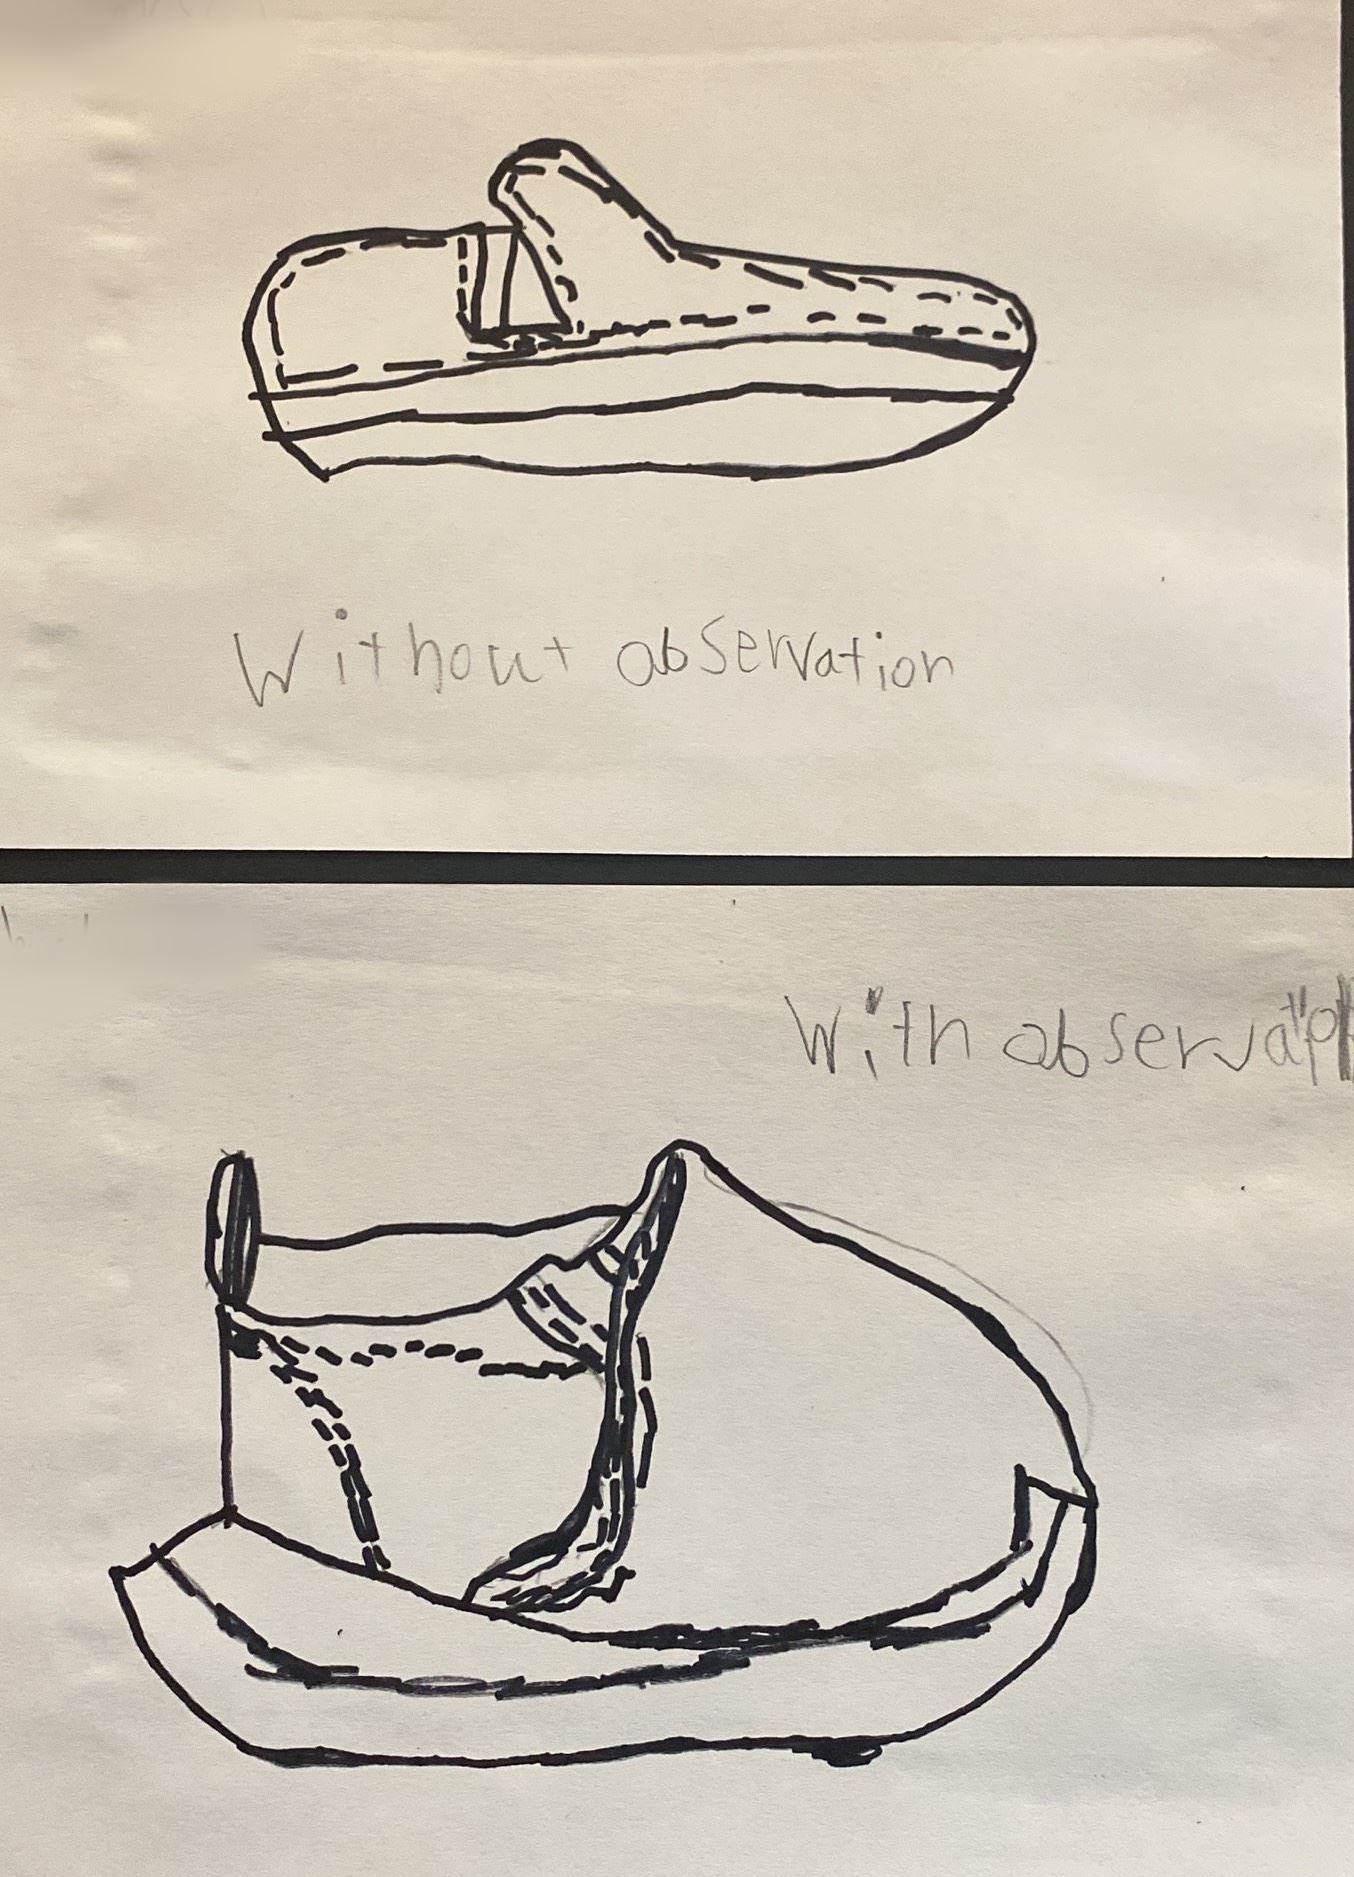 Without observation
With observation